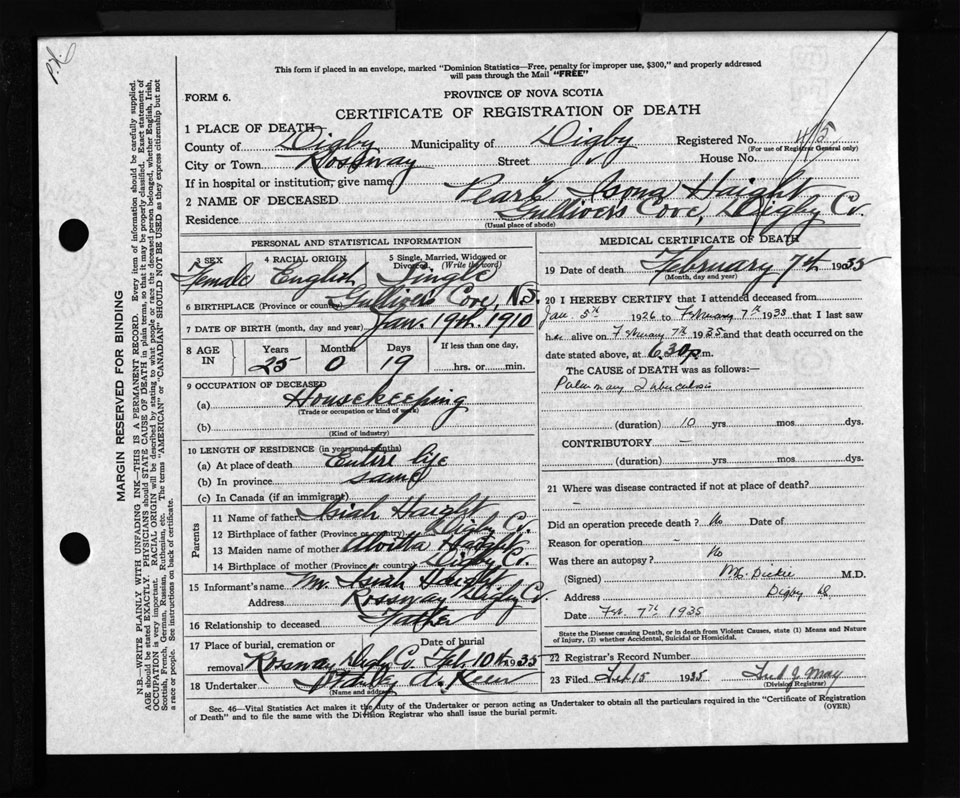 This form if placed in an envelope, marked "Dominion Statistics—Free, penalty for improper use, $300," and properly addressed
will pass through the Mail "FREE"
FORM 6.
PROVINCE OF NOVA SCOTIA
CERTIFICATE OF REGISTRATION OF DEATH
1 PLACE OF DEATH
County of Digby Municipality of Digby Registered No. 45
(For use of Registrar General only)
City or Town Rossway Street House No.
If in hospital or institution, give name
2 NAME OF DECEASED Pearl Isona Haight
Residence Gullivers Cove, Digby Co.
(Usual place of abode)
PERSONAL AND STATISTICAL INFORMATION
3 SEX 4 RACIAL ORIGIN 5 Single, Married, Widowed or Divorced (Write the word)
Female English Single
6 BIRTHPLACE (Province or country) Gullivers Cove, N.S.
7 DATE OF BIRTH (month, day and year) Jan. 19th. 1910
8 AGE IN Years Months Days If less than one day,
25 0 19 hrs. or min.
9 OCCUPATION OF DECEASED
(a) Housekeeping
(Trade or occupation or kind of work)
(b)
(Kind of industry)
10 LENGTH OF RESIDENCE (in years and months)
(a) At place of death Entire life
(b) In province same
(c) In Canada (if an immigrant)
Parents
11 Name of father Isiah Haight
12 Birthplace of father (Province or country) Digby Co.
13 Maiden name of mother Haight
14 Birthplace of mother (Province or country) Digby Co.
15 Informant's name Mr. Isiah Haight
Address Rossway Digby Co.
16 Relationship to deceased Father
17 Place of burial, cremation or removal Date of burial
Rossway Digby Co. Feb. 10th 1935
18 Undertaker Stanley A.
(Name and address)
MEDICAL CERTIFICATE OF DEATH
19 Date of death February 7th 1935
(Month, day and year)
20 I HEREBY CERTIFY that I attended deceased from
Jan. 5th 1926 to February 7th 1935 that I last saw
her alive on February 7th 1935 and that death occurred on the
date stated above, at 6.30 p.m.
The CAUSE of DEATH was as follows:—
Pulmonary Tuberculosis
(duration) 10 yrs mos. dys.
CONTRIBUTORY —
(duration) yrs. mos. dys.
21 Where was disease contracted if not at place of death? —
Did an operation precede death? No Date of
Reason for operation —
Was there an autopsy? No
(Signed) Dickie M.D.
Address Digby
Date Feb. 7th 1935
State the Disease causing Death, or in death from Violent Causes, state (1) Means and Nature
of Injury, (2) whether Accidental, Suicidal or Homicidal.
22 Registrar's Record Number
23 Filed Feb. 15 1935
(Division Registrar)
Sec. 46—Vital Statistics Act makes it the duty of the Undertaker or person acting as Undertaker to obtain all the particulars required in the "Certificate of Registration
of Death" and to file the same with the Division Registrar who shall issue the burial permit.
(OVER)
MARGIN RESERVED FOR BINDING
N.B.—WRITE PLAINLY WITH UNFADING INK—THIS IS A PERMANENT RECORD. Every item of information should be carefully supplied.
AGE should be stated EXACTLY. PHYSICIANS should STATE CAUSE OF DEATH in plain terms, so that it may be properly classified. Exact statement of
OCCUPATION is very important. RACIAL ORIGIN will be described by stating to what people or race the deceased person belonged, whether English, Irish,
Scottish, French, German, Russian, Ruthenian, etc. The terms "AMERICAN" or "CANADIAN" SHOULD NOT BE USED as they express citizenship but not
a race or people. See instructions on back of certificate.